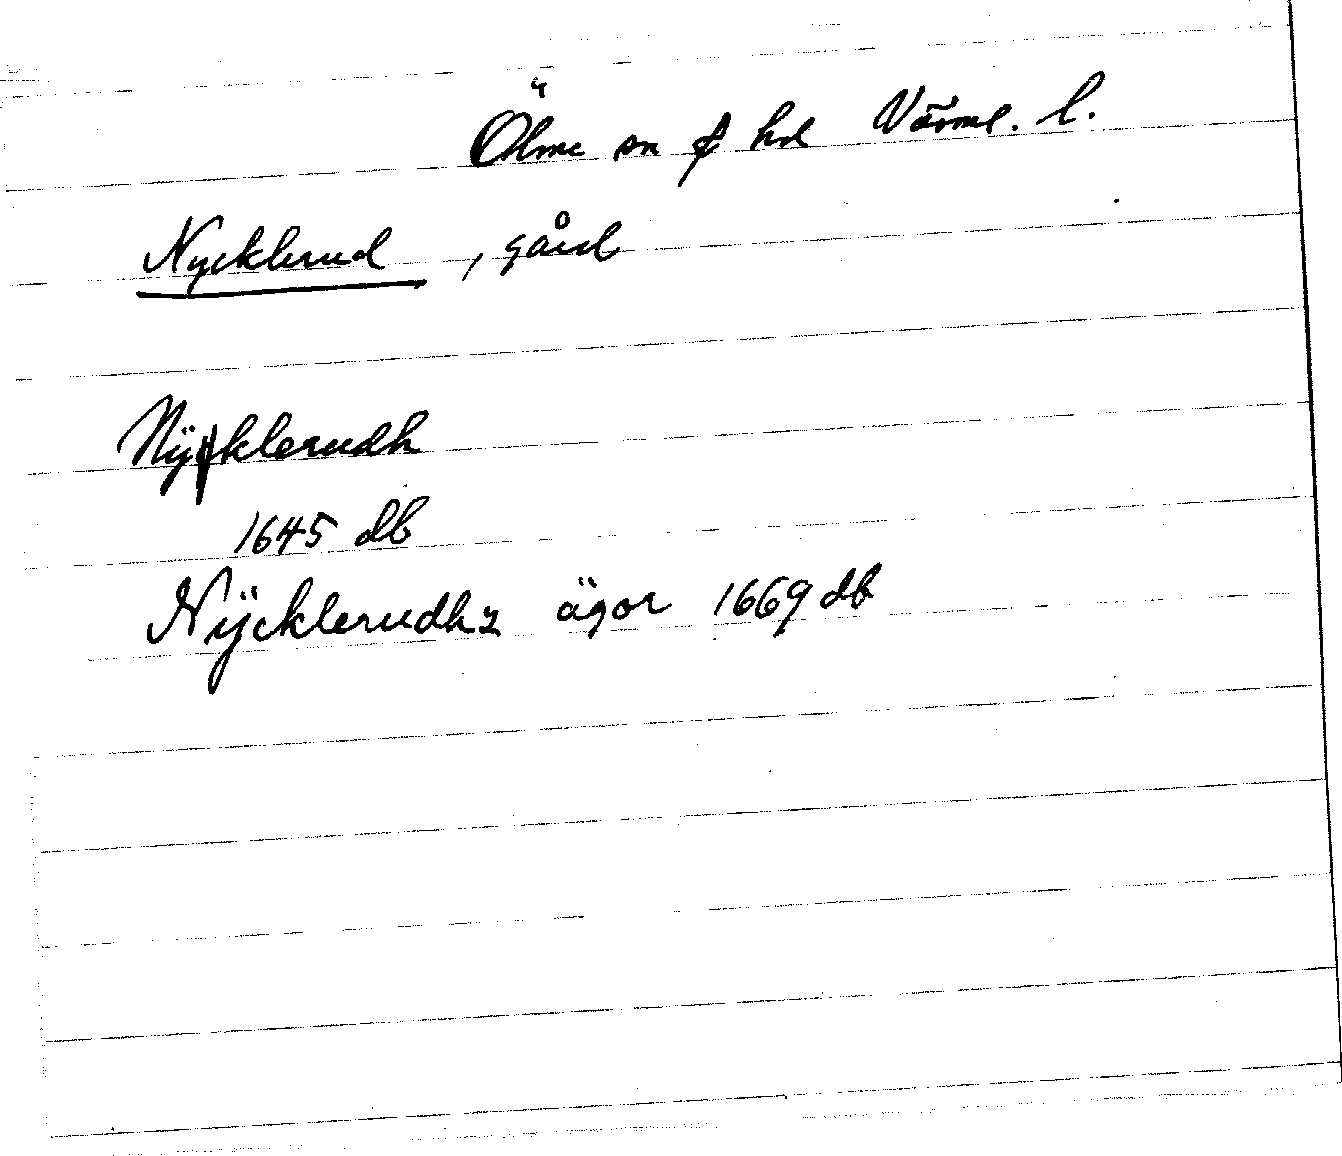 Ölme sn & hd Värml. l.
Nycklerud, gård
Nÿcklerudh
1645 db
Nÿcklerudhz ägor 1669 db